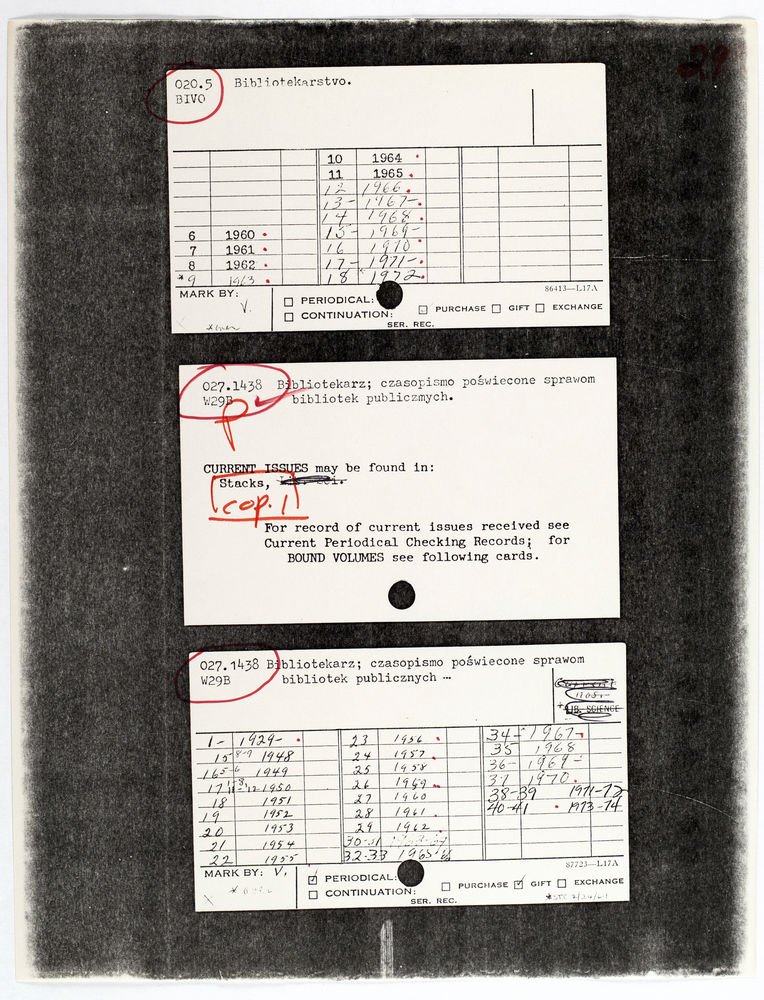 29
020.5 Bibliotekarstvo.
BIVO
10 1964
11 1965
12 1966
13- 1967-
14 1968
6 1960 15- 1969-
7 1961 16 1970
8 1962 17- 1971-
*9 1963 18 1972
MARK BY: V.
86413—L17A
PERIODICAL:
CONTINUATION: PURCHASE GIFT EXCHANGE
SER. REC.
027.1438 Bibliotekarz; czasopismo poświecone sprawom
W29B bibliotek publicznych.
P
CURRENT ISSUES may be found in:
Stacks,
cop. 1
For record of current issues received see
Current Periodical Checking Records; for
BOUND VOLUMES see following cards.
027.1438 Bibliotekarz; czasopismo poświecone sprawom
W29B bibliotek publicznych —
LIB. SCIENCE
1- 1929- 23 1956 34- 1967-
15 8-9 1948 24 1957 35 1968
16 5-6 1949 25 1958 36- 1969-
17 1950 26 1959 37 1970
18 1951 27 1960 38-39 1971-72
19 1952 28 1961 40-41 1973-74
20 1953 29 1962
21 1954 30-31 1963-64
22 1955 32-33
87723—L17A
MARK BY: V.
PERIODICAL:
CONTINUATION: PURCHASE GIFT EXCHANGE
SER. REC.